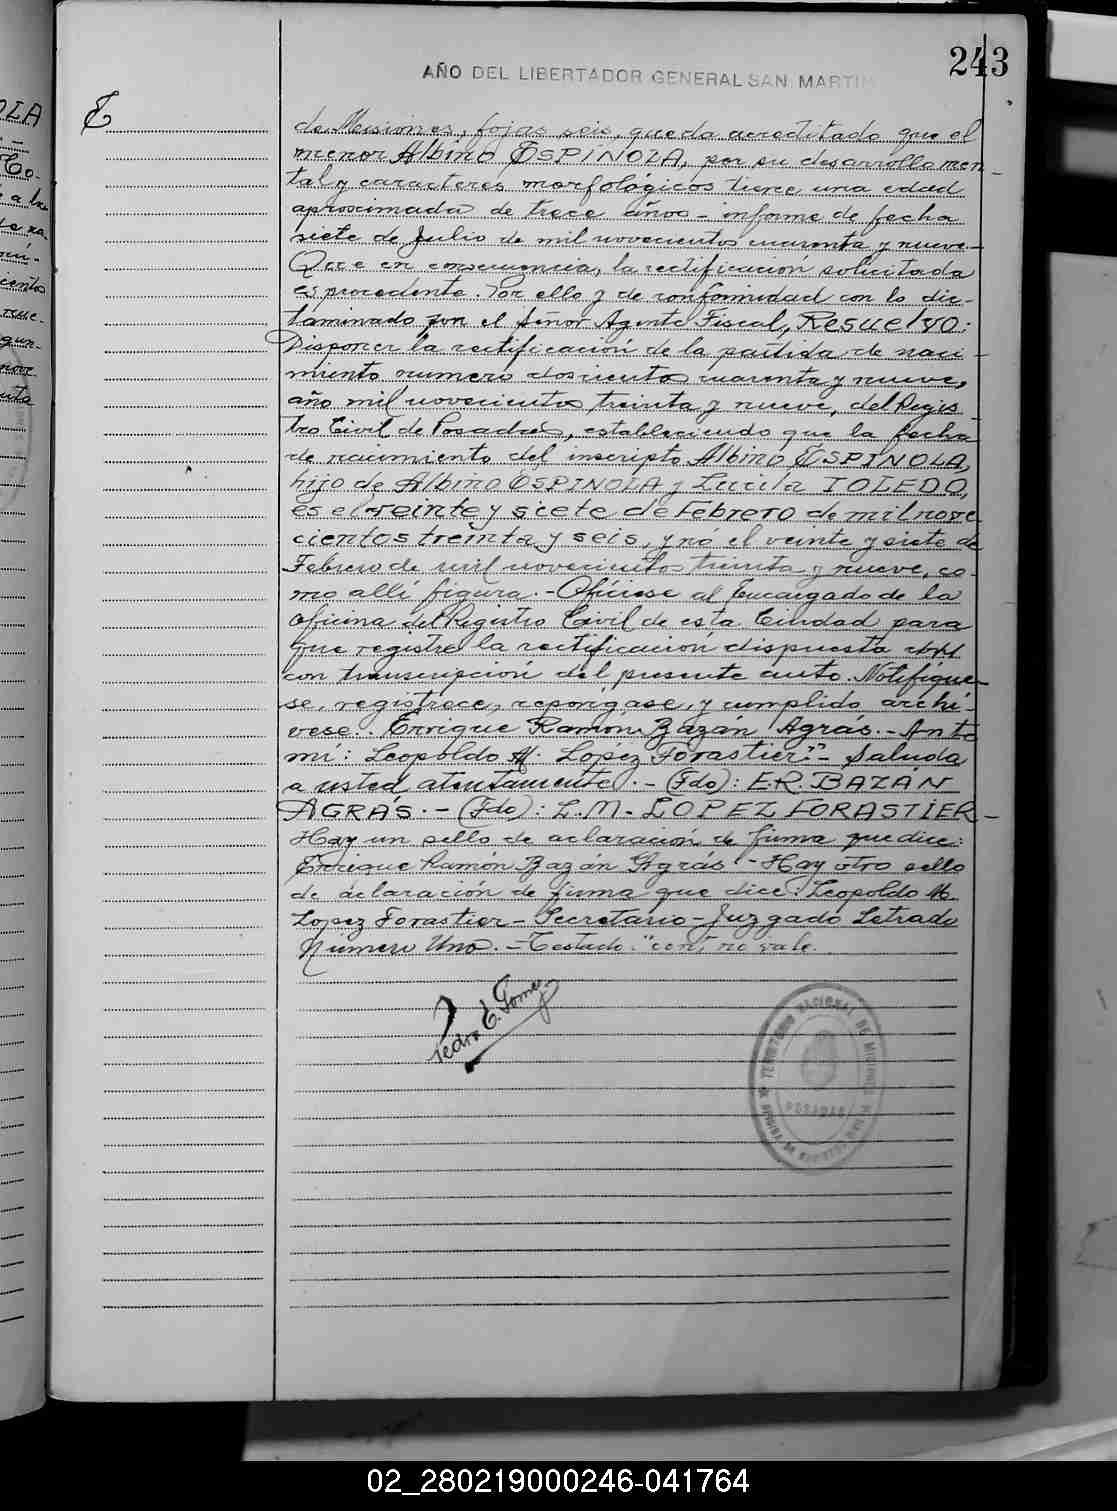 243
AÑO DEL LIBERTADOR GENERAL SAN MARTIN
de Misiones, fojas seis, queda acreditado que el
menor Albino ESPINOLA, por su desarrollo men-
tal y caracteres morfológicos tiene una edad
aproximada de trece años - informe de fecha
siete de Julio de mil novecientos cuarenta y nueve.-
Que en consecuencia, la rectificación solicitada
es procedente. Por ello y de conformidad con lo dic-
taminado por el Señor Agente Fiscal, Resuelvo:
Disponer la rectificación de la partida de naci-
miento numero doscientos cuarenta y nueve,
año mil novecientos treinta y nueve, del Regis-
tro Civil de Posadas, estableciendo que la fecha
de nacimiento del inscripto Albino ESPINOLA,
hijo de Albino ESPINOLA y Lucila TOLEDO,
es el veinte y siete de Febrero de mil nove
cientos treinta y seis, y no el veinte y siete de
Febrero de mil novecientos treinta y nueve, co-
mo allí figura.- Ofíciese al Encargado de la
oficina del Registro Civil de esta Ciudad para
que registre la rectificación dispuesta
con transcripción del presente auto. Notifique-
se, registrese, repongase, y cumplido archi-
vese. Enrique Ramon Bazán Agrás.- Ante
mí: Leopoldo M. López Forastier".- Saluda
a usted atentamente.- (Fdo): E.R. BAZÁN
AGRÁS.- (Fdo): L.M. LOPEZ FORASTIER-
Hay un sello de aclaración de firma que dice:
Enrique Ramón Bazán Agrás - Hay otro sello
de aclaración de firma que dice: Leopoldo M.
Lopez Forastier - Secretario - Juzgado Letrado
Número Uno.- Testado: "con", no vale.
Pedro E. Gomez
TERRITORIO NACIONAL DE MISIONES
POSADAS
02_280219000246-041764